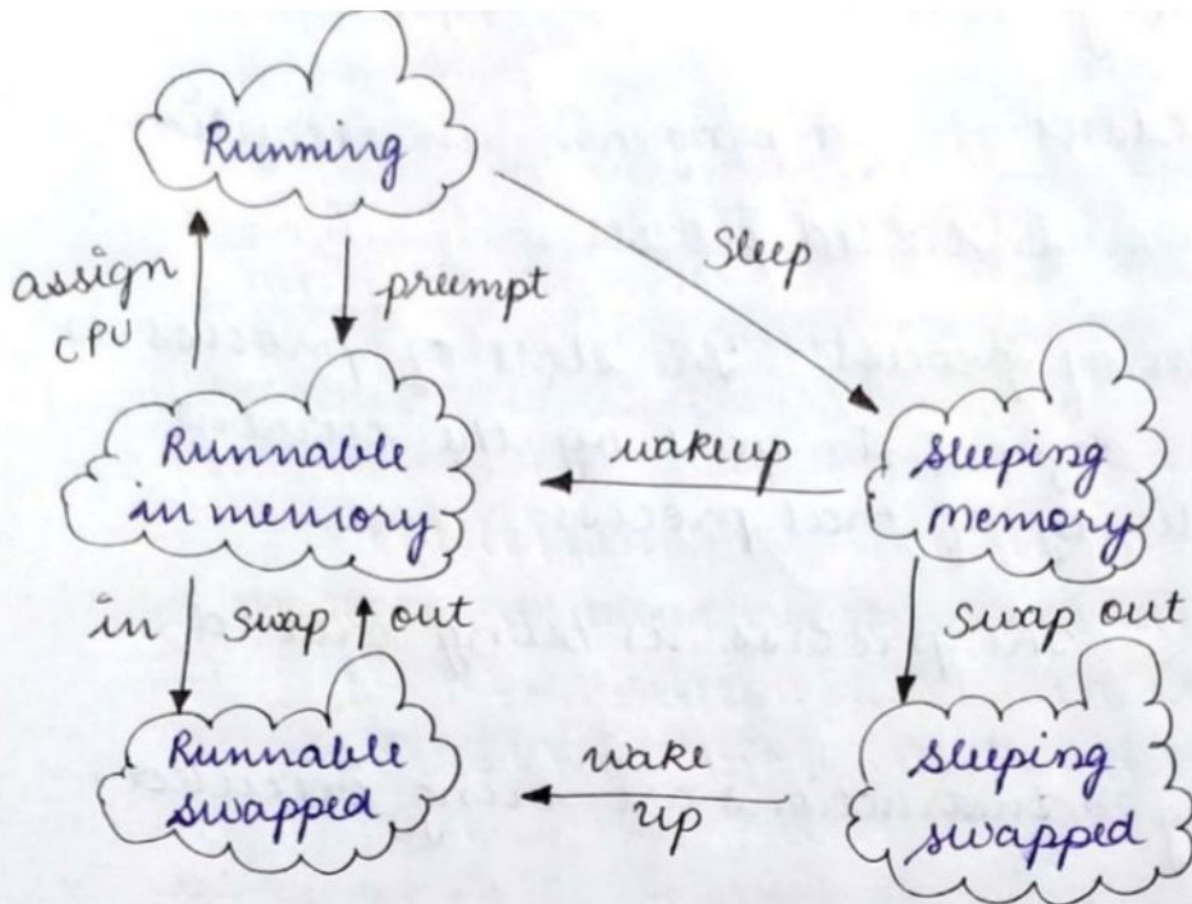 Running
assign
CPU
preempt
Sleep
Runnable
in memory
wakeup
sleeping
memory
in swap out
swap out
Runnable
swapped
wake
up
sleeping
swapped